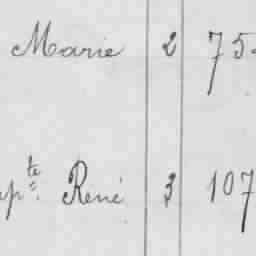 Marie 2 75
pte René 3 107